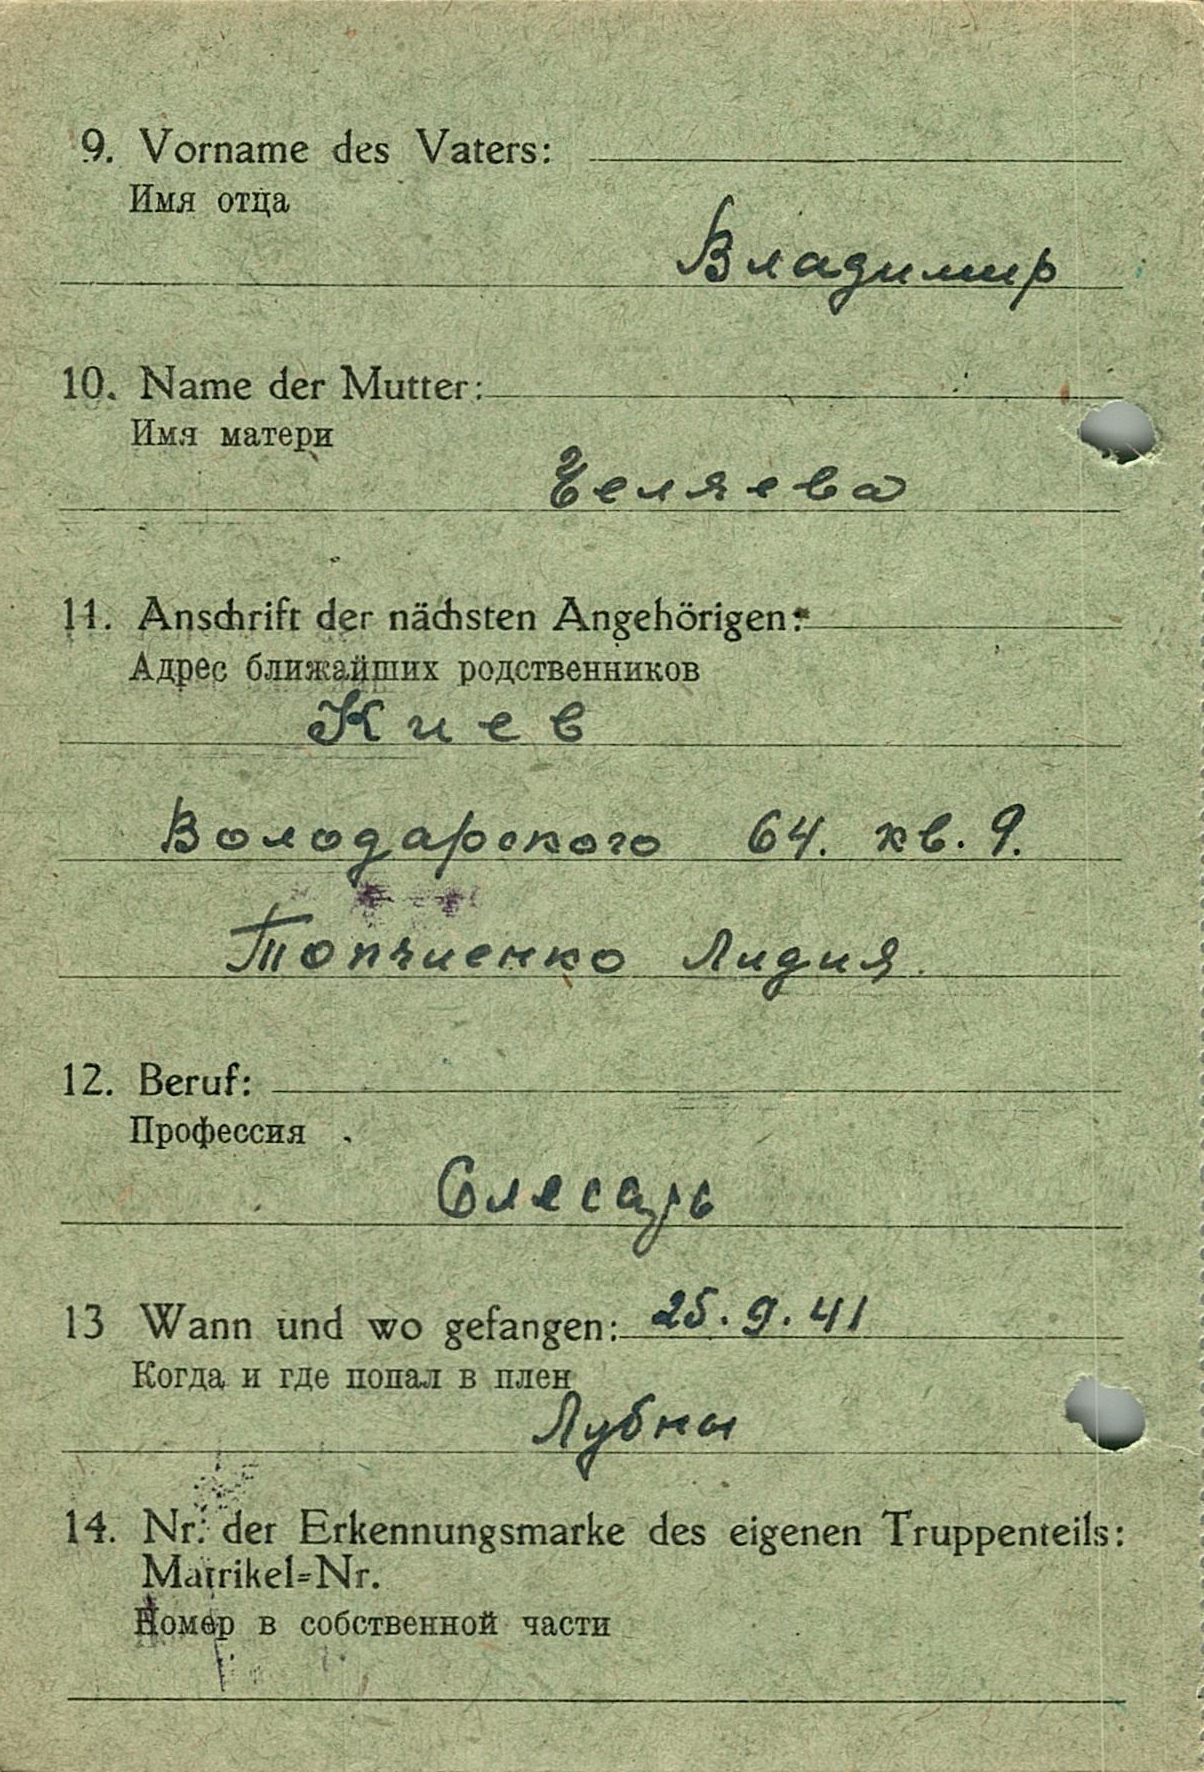 9. Vorname des Vaters:
Имя отца
Владимир
10. Name der Mutter:
Имя матери
11. Anschrift der nächsten Angehörigen:
Адрес ближайших родственников
Киев
Володарского 64. кв. 9.
Топчиенко Лидия.
12. Beruf:
Профессия
Слесарь
13 Wann und wo gefangen: 25.9.41
Когда и где попал в плен
Лубны
14. Nr. der Erkennungsmarke des eigenen Truppenteils:
Matrikel=Nr.
Номер в собственной части